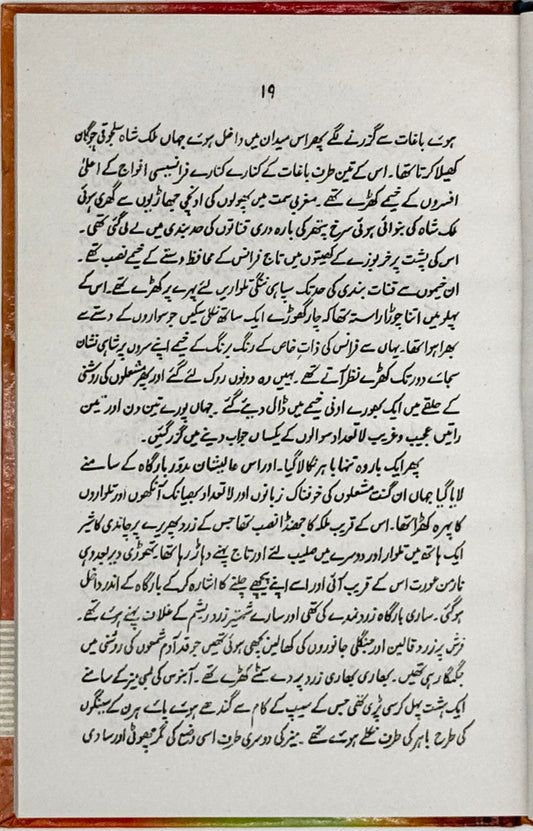 ۱۹
ہوئے باغات سے گزرنے لگے پھر اس میدان میں داخل ہوئے جہاں ملک شاہ سلجوقی چوگان
کھیلا کرتا تھا۔ اس کے تین طرف باغات کے کنارے کنارے فرانسیسی افواج کے اعلیٰ
افسروں کے خیمے کھڑے تھے۔ مغربی سمت میں پھولوں کی اونچی جھاڑیوں سے گھری ہوئی
ملک شاہ کی بنوائی ہوئی سرخ پتھر کی بارہ دری قناتوں کی حد بندی میں لے لی گئی تھی۔
اس کی پشت پر خربوزے کے کھیتوں میں تاج فرانس کے محافظ دستے کے خیمے نصب تھے۔
ان خیموں سے قنات بندی کی حد تک سپاہی ننگی تلواریں لئے پہرے پر کھڑے تھے۔ اس کے
پہلو میں اتنا چوڑا راستہ تھا کہ چار گھوڑے ایک ساتھ نکل سکیں جو سواروں کے دستے سے
بھرا ہوا تھا۔ یہاں سے فرانس کی ذات خاص کے رنگ برنگ کے خیمے اپنے سروں پر شاہی نشان
سجائے دور تک کھڑے نظر آتے تھے۔ یہیں وہ دونوں روک لئے گئے اور پھر مشعلوں کی روشنی
کے حلقے میں ایک بھورے اونی خیمے میں ڈال دیئے گئے۔ جہاں پورے تین دن اور تین
راتیں عجیب و غریب لاتعداد سوالوں کے یکساں جواب دینے میں گزر گئیں۔
پھر ایک بار وہ تنہا باہر نکالا گیا۔ اور اس عالیشان مدوّر بارگاہ کے سامنے
لایا گیا جہاں ان گنت مشعلوں کی خوفناک زبانوں اور لاتعداد بھیانک آنکھوں اور تلواروں
کا پہرہ کھڑا تھا۔ اس کے قریب ملکہ کا جھنڈا نصب تھا جس کے زرد پھریرے پر چاندی کا شیر
ایک ہاتھ میں تلوار اور دوسرے میں صلیب لئے اور تاج پہنے دہاڑ رہا تھا۔ تھوڑی دیر بعد وہی
نارمن عورت اس کے قریب آئی اور اسے اپنے پیچھے چلنے کا اشارہ کر کے بارگاہ کے اندر داخل
ہو گئی۔ ساری بارگاہ زرد نمدے کی تھی اور سارے شہتیر زرد ریشم کے غلاف پہنے ہوئے تھے۔
فرش پر زرد قالین اور جنگلی جانوروں کی کھالیں بچھی ہوئی تھیں جو قد آدم شمعوں کی روشنی میں
جگمگا رہی تھیں۔ بھاری بھاری زرد پردے سمٹے کھڑے تھے۔ آبنوس کی لمبی میز کے سامنے
ایک ہشت پہل کرسی پڑی تھی جس کے سیپ کے کام سے گندھے ہوئے پائے ہرن کے سینگوں
کی طرح باہر کی طرف نکلے ہوئے تھے۔ میز کی دوسری طرف اسی وضع کی مگر چھوٹی اور سادی